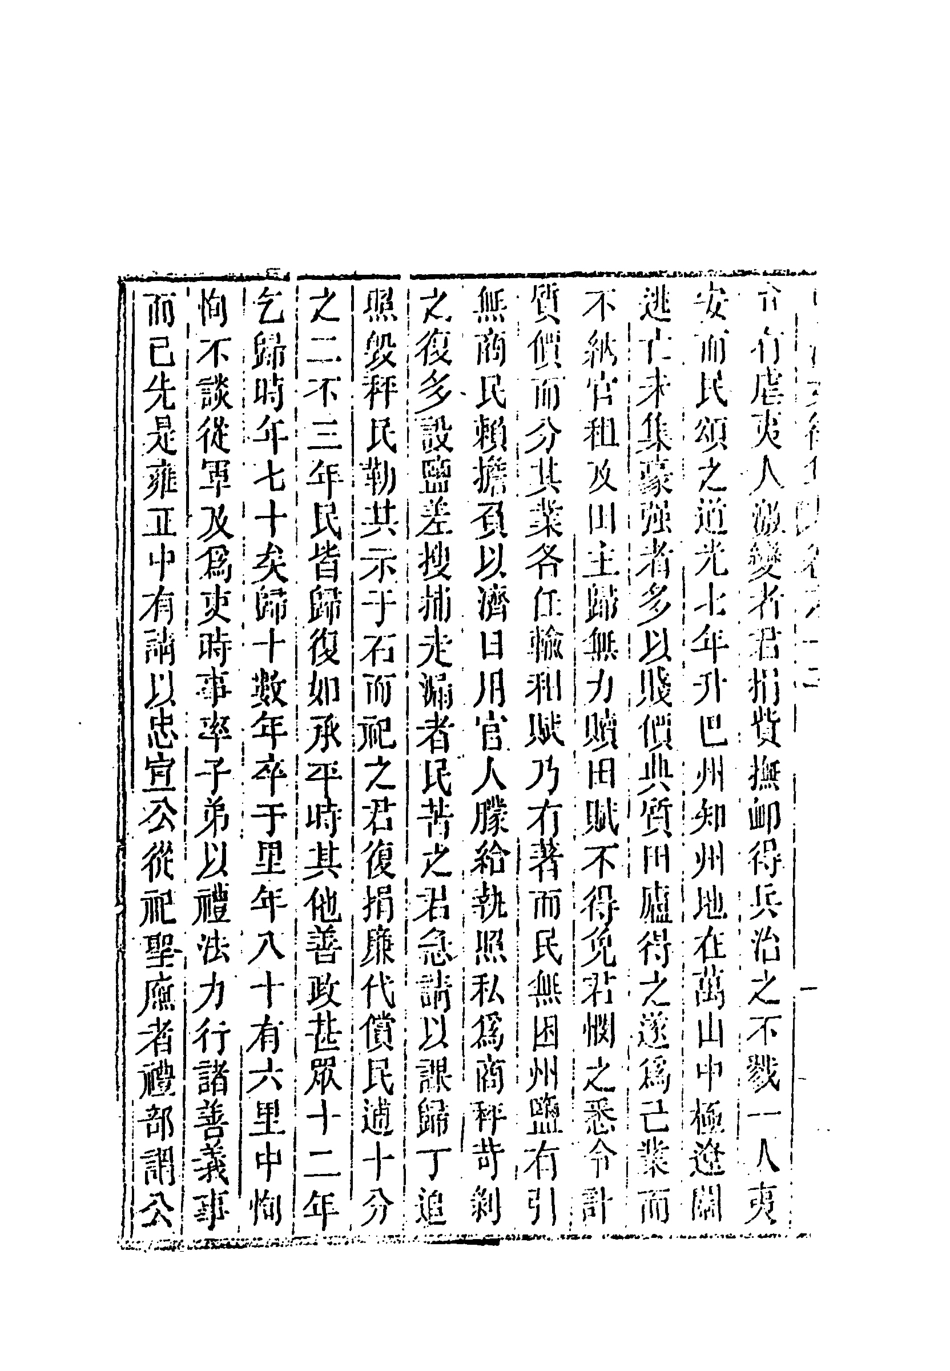 有虐夷人激變者君捐貲撫卹得兵治之不戮一人夷
安而民頌之道光七年升巴州知州地在萬山中極遼闊
逃亡未集豪强者多以賤價典質田廬得之遂爲己業而
不納官租及田主歸無力贖田賦不得免君憫之悉令計
質價而分其業各任輸租賦乃有著而民無困州鹽有引
無商民賴擔負以濟日用官人朦給執照私爲商秤苛剝
之復多設鹽差搜捕走漏者民苦之君急請以課歸丁追
照毀秤民勒其示于石而祀之君復捐廉代償民逋十分
之二不三年民皆歸復如承平時其他善政甚眾十二年
乞歸時年七十矣歸十數年卒于里年八十有六里中恂
恂不談從軍及爲吏時事率子弟以禮法力行諸善義事
而已先是雍正中有請以忠宣公從祀聖廡者禮部謂公